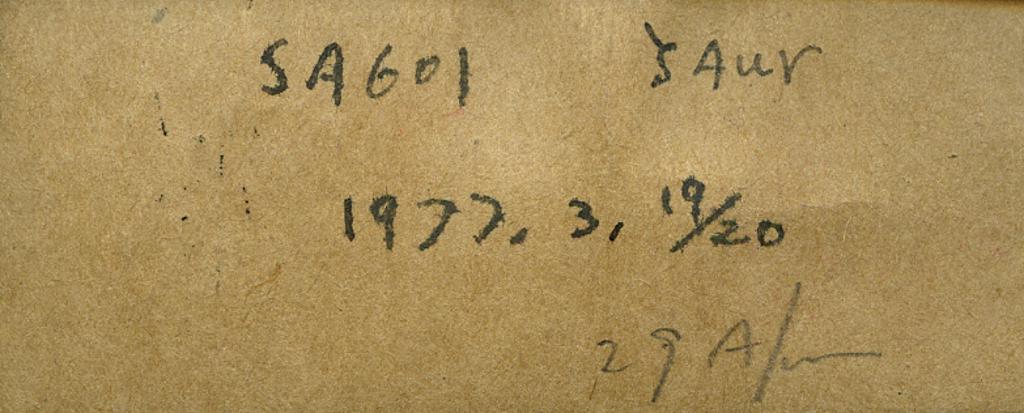 SA601 ζ Aur
1977. 3. 19/20
29 A/m